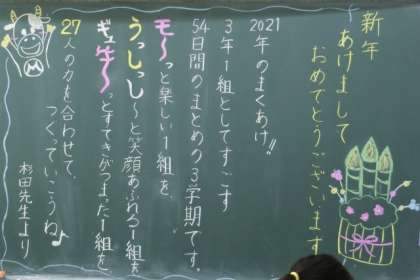 新年
あけまして
おめでとうございます
2021年のまくあけ!!
3年1組としてすごす
54日間のまとめの3学期です。
モ〜っと楽しい1組を
うっしっし〜と笑顔あふれる1組を
ギュ牛〜っとすてきがつまった1組を
27人の力を合わせて、
つくっていこうね♪
杉田先生より